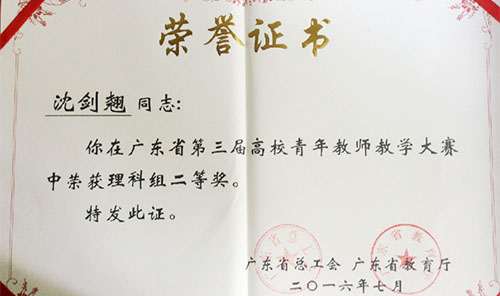 荣誉证书
沈剑翘 同志:
你在广东省第三届高校青年教师教学大赛
中荣获理科组二等奖。
特发此证。
广东省总工会 广东省教育厅
二〇一六年七月